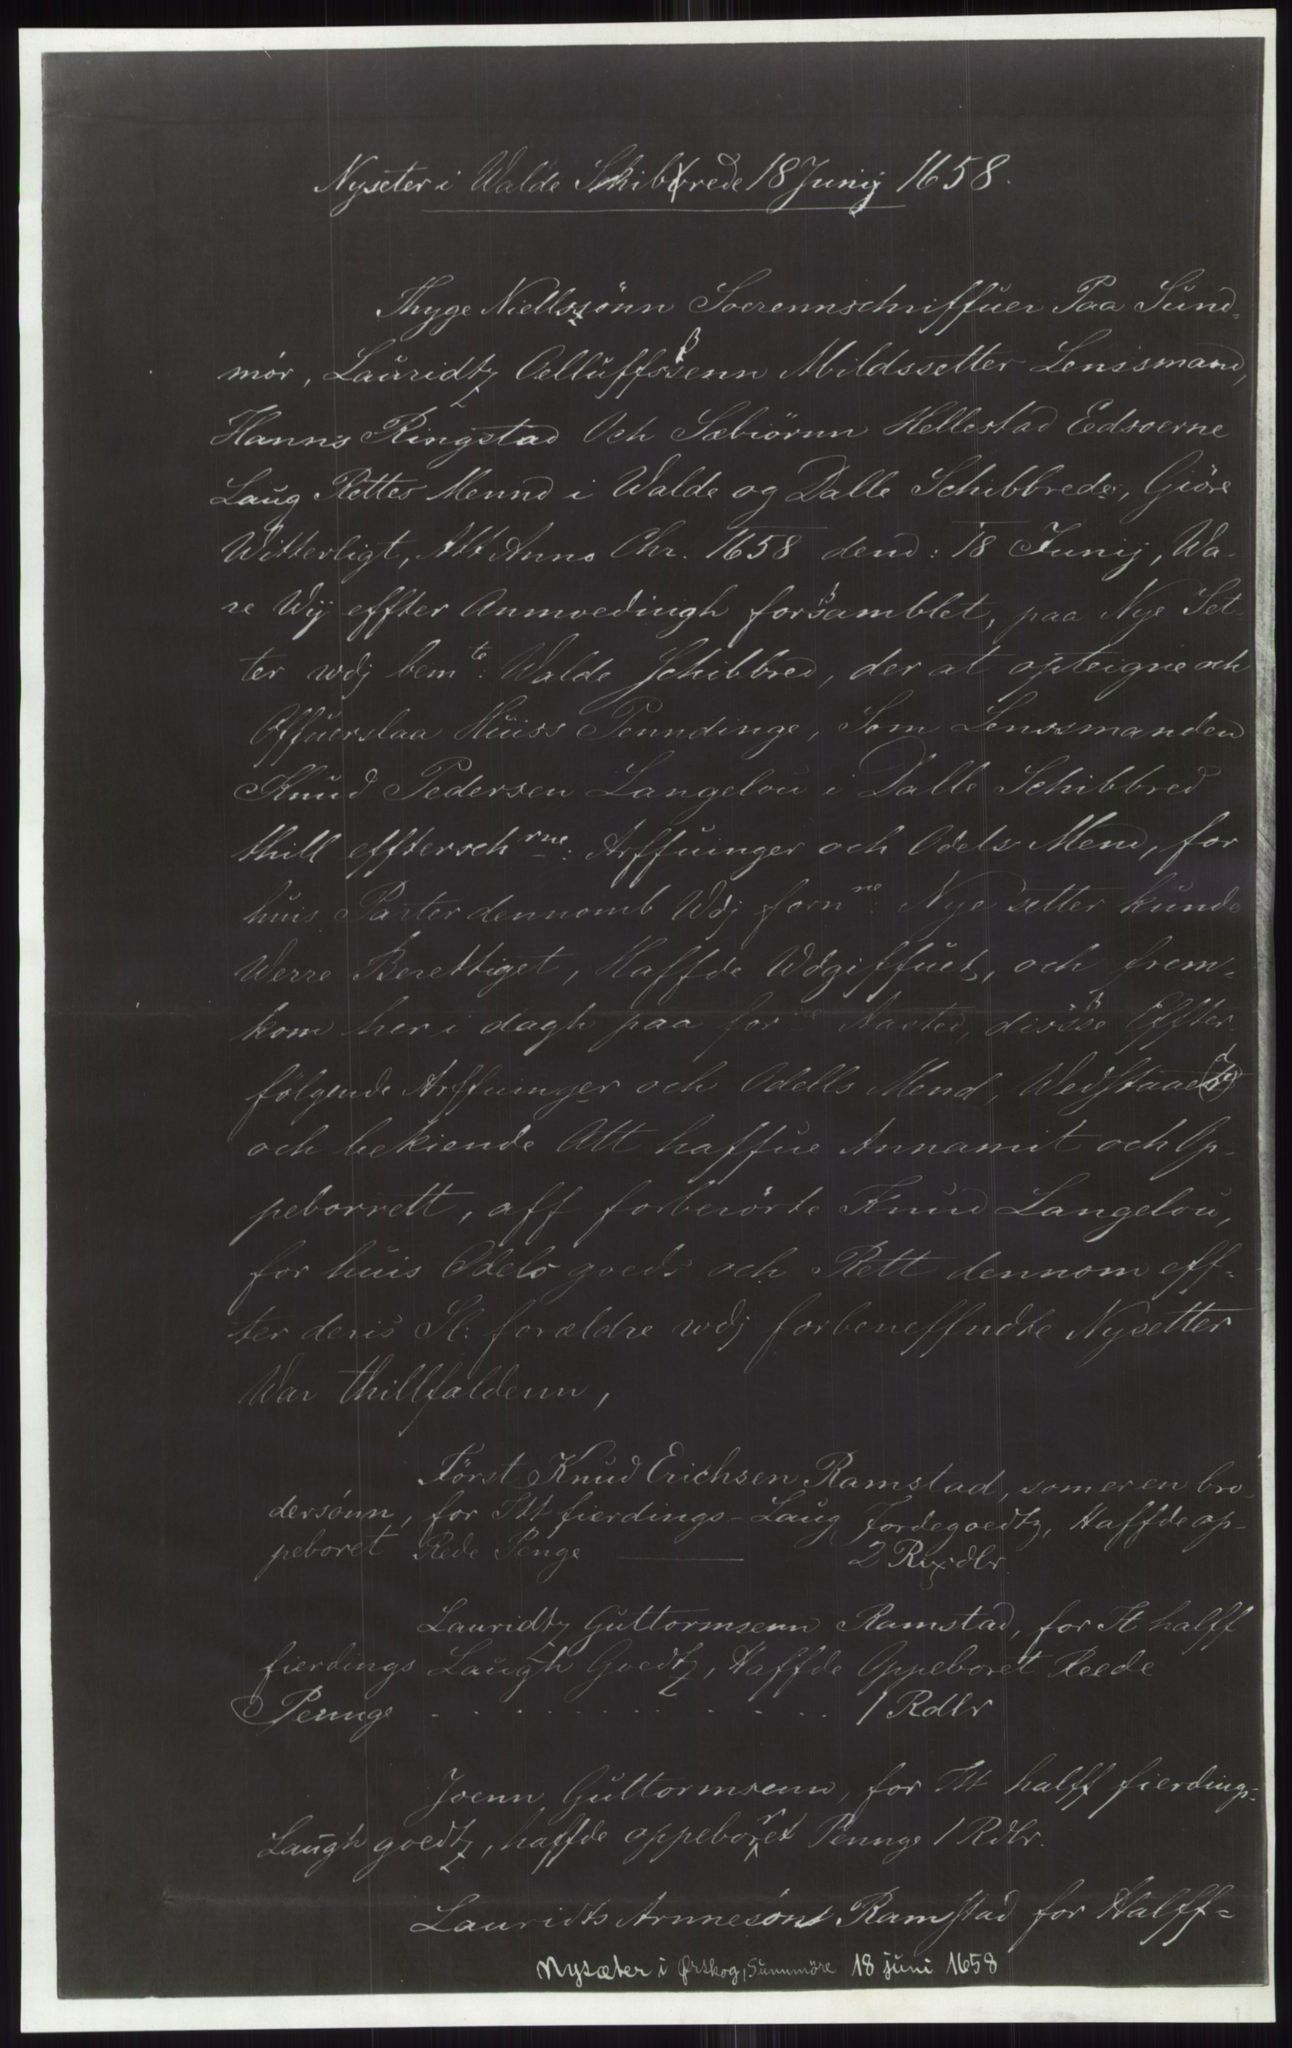 Nyseter i Walde Skibrede 18 Junij 1658.
Thyge Niellssönn Soerennschriffuer Paa Sund-
mör, Lauridtz Oelluffssenn Mildssetter Lenssmand,
Hanns Ringstad Och Sæbiörnn Hellestad Edsoerne
Laug Rettes Mennd i Walde og Dalle Schibbrede, Giöre
Witterligt, Att Anno Chr. 1658 dend: 18 Junij, Wa-
re Wij effter Anmodingh forsamblet, paa Nye Set-
ter wdj bemte: Walde Schibbred, der at opteigne och
Offuerslaa Huiss Penndinge, Som Lenssmanden
Knud Pedersen Langelou i Dalle Schibbred
thill effterschrne: Arffuinger och Odels Mend, for
huis Parter dennomb Wdj fornne: Nye setter kunde
Werre Berettiget, Haffde Wdgiffuet, och frem-
kom her i dagh paa forne Aasted, disse Effter-
fölgende Arffuinger och Odells Mend, Wedstaaet
och bekiende Att haffue Annamit och Op-
peborrett, aff forberörte Knud Langelou,
for huis Odels goeds och Rett dennom eff-
ter deris Sl: forældre wdj forbeneffndte Nysetter
War thillfaldenn,
Först Knud Erichsen Ramstad, som er en bro-
dersönn, for Itt fierdings-Laug Jordegoedtz, Haffde op-
peboret Rede Penge 2 Rixdlr
Lauridtz Guttormsenn Ramstad, for It halff
fierdings Laugh Goedtz, Haffde Oppeboret Reede
Pennge . . . . . . . . . . . . . . 1 Rdlr
Joenn Guttormsenn, for Itt halff fierdings-
Laugh goedtz, haffde oppeborret Pennge 1 Rdlr.
Lauridts Arnnesönn Ramstad for Halff-
Nysæter i Ørskog, Sunnmöre 18 juni 1658